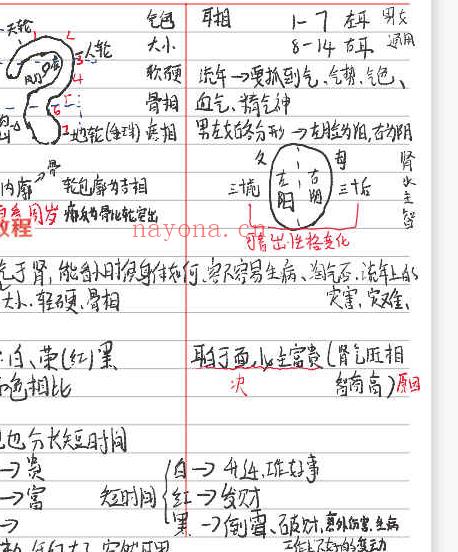 天轮 气色 耳相 1-7 左耳 男女
人轮 大小 8-14 右耳 通用
软硬 流年→要抓到气、气势、气色、
骨相 血气、精气神
地轮(垂珠) 痣相 男左女右分形→左脸为阳,右为阴
父 母
三十前 左阳 右阴 三十后
肾水主智
内廓 骨 轮包廓为吉相
教程
nayona.cn
可看出性格变化
于肾,能看小时候身体如何,容不容易生病、淘气否、流年上的
大小、轻硬、骨相 灾害、灾难、
白、荣(红)黑 耳白于面,次主富贵(肾气旺相
色相比 次 智商高)原因
也分长短时间
→贵 白→升迁、工作好事
→富 短时间 红→发财
→ 黑→倒霉、破财、意外伤害、生病